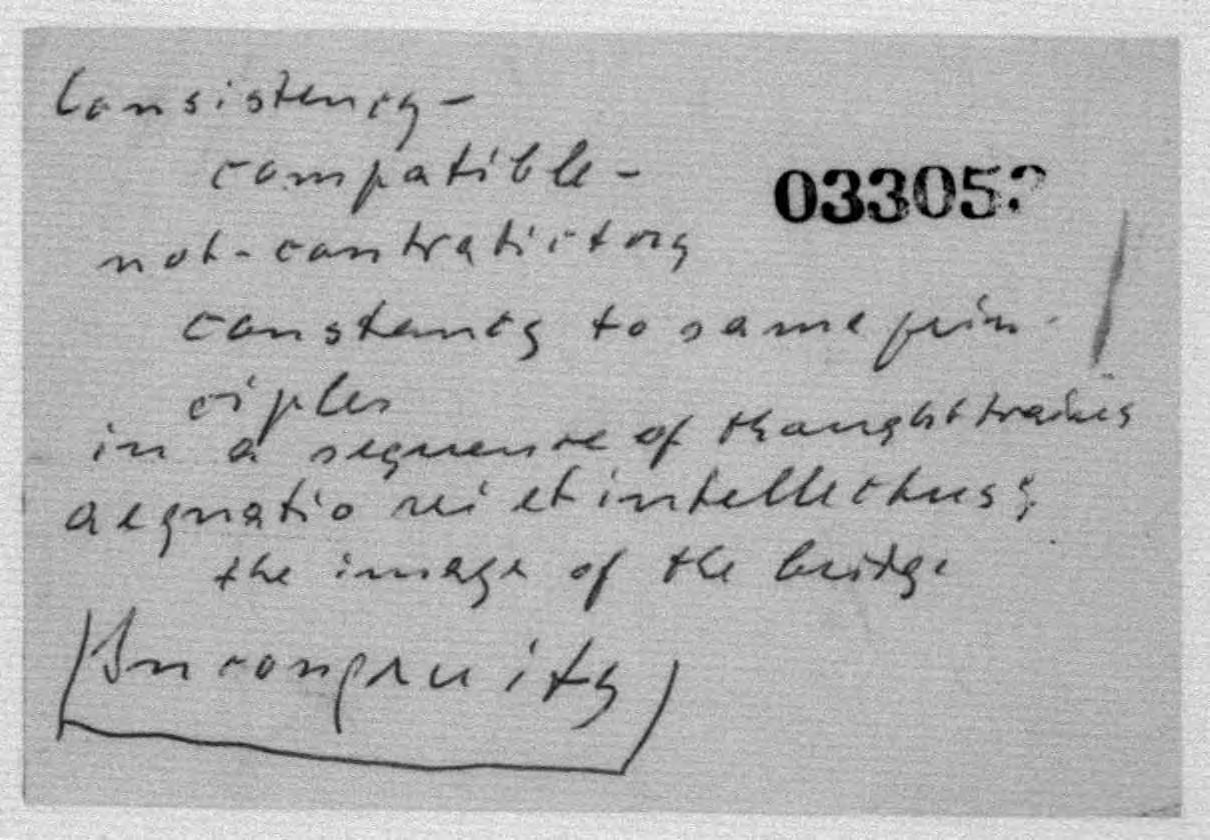 Consistency -
compatible -
033053
not-contratictory
constancy to same prin-
ciples
in a sequence of thought
aequatio rei et intellectus;
the image of the bridge
Incongruity